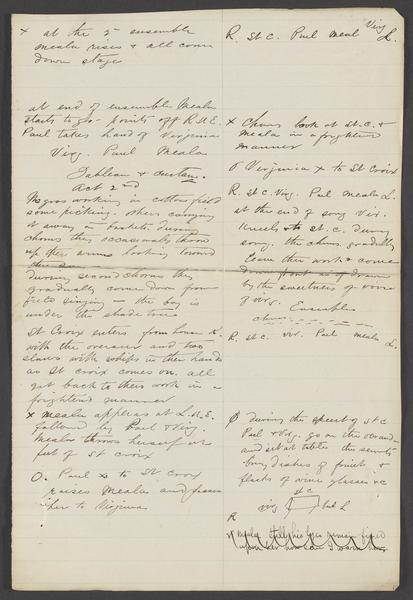 x at the 2 ensemble
Meala rises & all come
down stage
at end of ensemble Meala
starts to go - points off R.U.E.
Paul takes hand of Virginia
Virg. Paul Meala
Tableau & curtain.
Act 2nd
Negroes working in cotton field
some picking. others carrying
it away in baskets. during
chorus they occasionaly throw
up their arms looking toward
the
during second chorus they
gradually come down from
field singing — the boy is
under the shade tree
St Croix enters from house R.
with the overseer and two
slaves with whips in their hands
as St Croix comes on, all
get back to their work in a
frightened manner
x Meala appears at L.U.E.
followed by Paul & Virg.
Meala throws herself at
feet of St Croix
O. Paul x to St Croix
raises Meala and passes
her to Virginia
R. St C. Paul Meal Virg L.
x Chorus look at St. C. &
Meala in a frightened
manner
Virginia x to St Croix
R. St C. Virg. Paul Meala L.
at the end of song Vir.
kneels to St. C. during
song. the chorus gradually
leave their work & come
down front as if drawn
by the sweetness of voice
of Virg. Ensembles
chorus.
R. St. C. Vir. Paul Meala L.
Ø during the speech of St C
Paul & Virg. go on the verandah
and sit at table. the servants
bring dishes of fruit &
flasks of wine glasses &c
St C
Virg Paul L
R